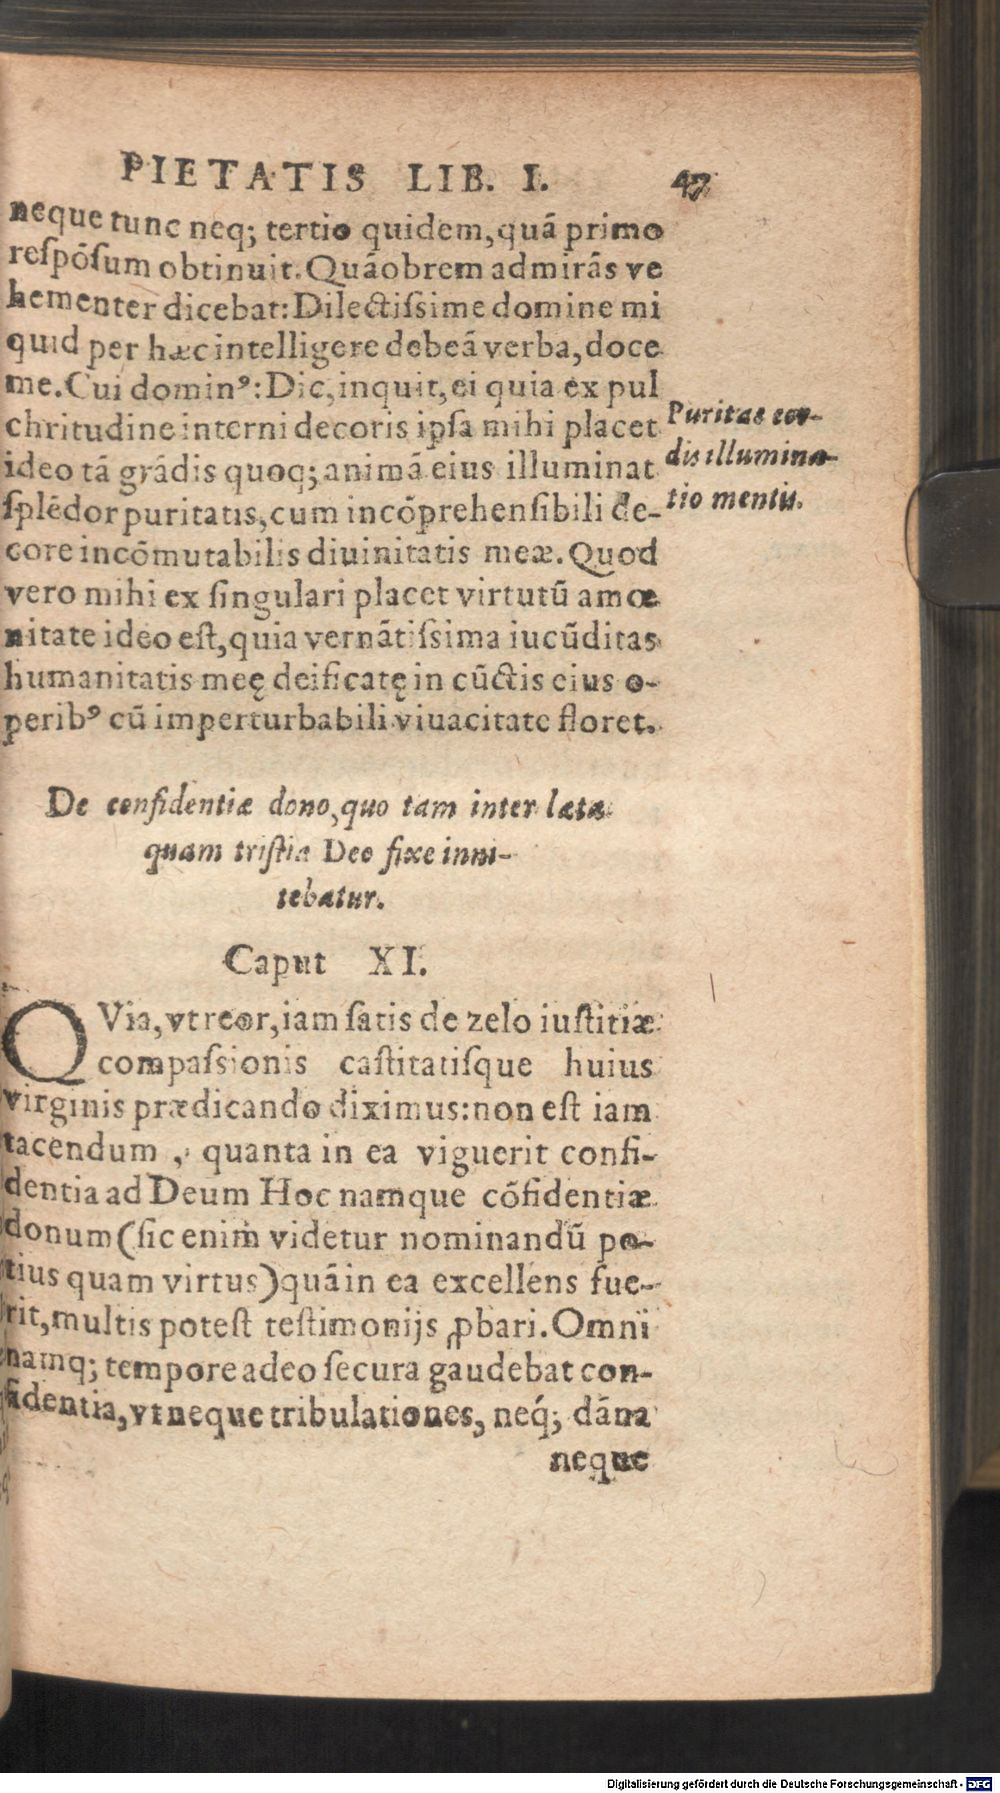 PIETATIS LIB. I. 47
neque tunc neq; tertio quidem, quā primo
respōsum obtinuit. Quāobrem admirās ve
hementer dicebat: Dilectissime domine mi
quid per hæc intelligere debeā verba, doce
me. Cui dominꝰ: Dic, inquit, ei quia ex pul
chritudine interni decoris ipsa mihi placet
ideo tā grādis quoq; animā eius illuminat
splēdor puritatis, cum incōprehensibili de-
core incōmutabilis diuinitatis meæ. Quod
vero mihi ex singulari placet virtutū amœ
nitate ideo est, quia vernātissima iucūditas
humanitatis meę deificatę in cūctis eius o-
peribꝰ cū imperturbabili viuacitate floret.
Puritas cor-
dis illumina-
tio mentis.
De confidentiæ dono, quo tam inter læta
quam tristia Deo fixe inni-
tebatur.
Caput XI.
QVia, vt reor, iam satis de zelo iustitiæ
compassionis castitatisque huius
virginis prædicando diximus: non est iam
tacendum, quanta in ea viguerit confi-
dentia ad Deum Hoc namque cōfidentiæ
donum (sic enim videtur nominandū po-
tius quam virtus) quā in ea excellens fue-
rit, multis potest testimonijs ꝓbari. Omni
namq; tempore adeo secura gaudebat con-
fidentia, vt neque tribulationes, neq́; dāna
neque
Digitalisierung gefördert durch die Deutsche Forschungsgemeinschaft - DFG